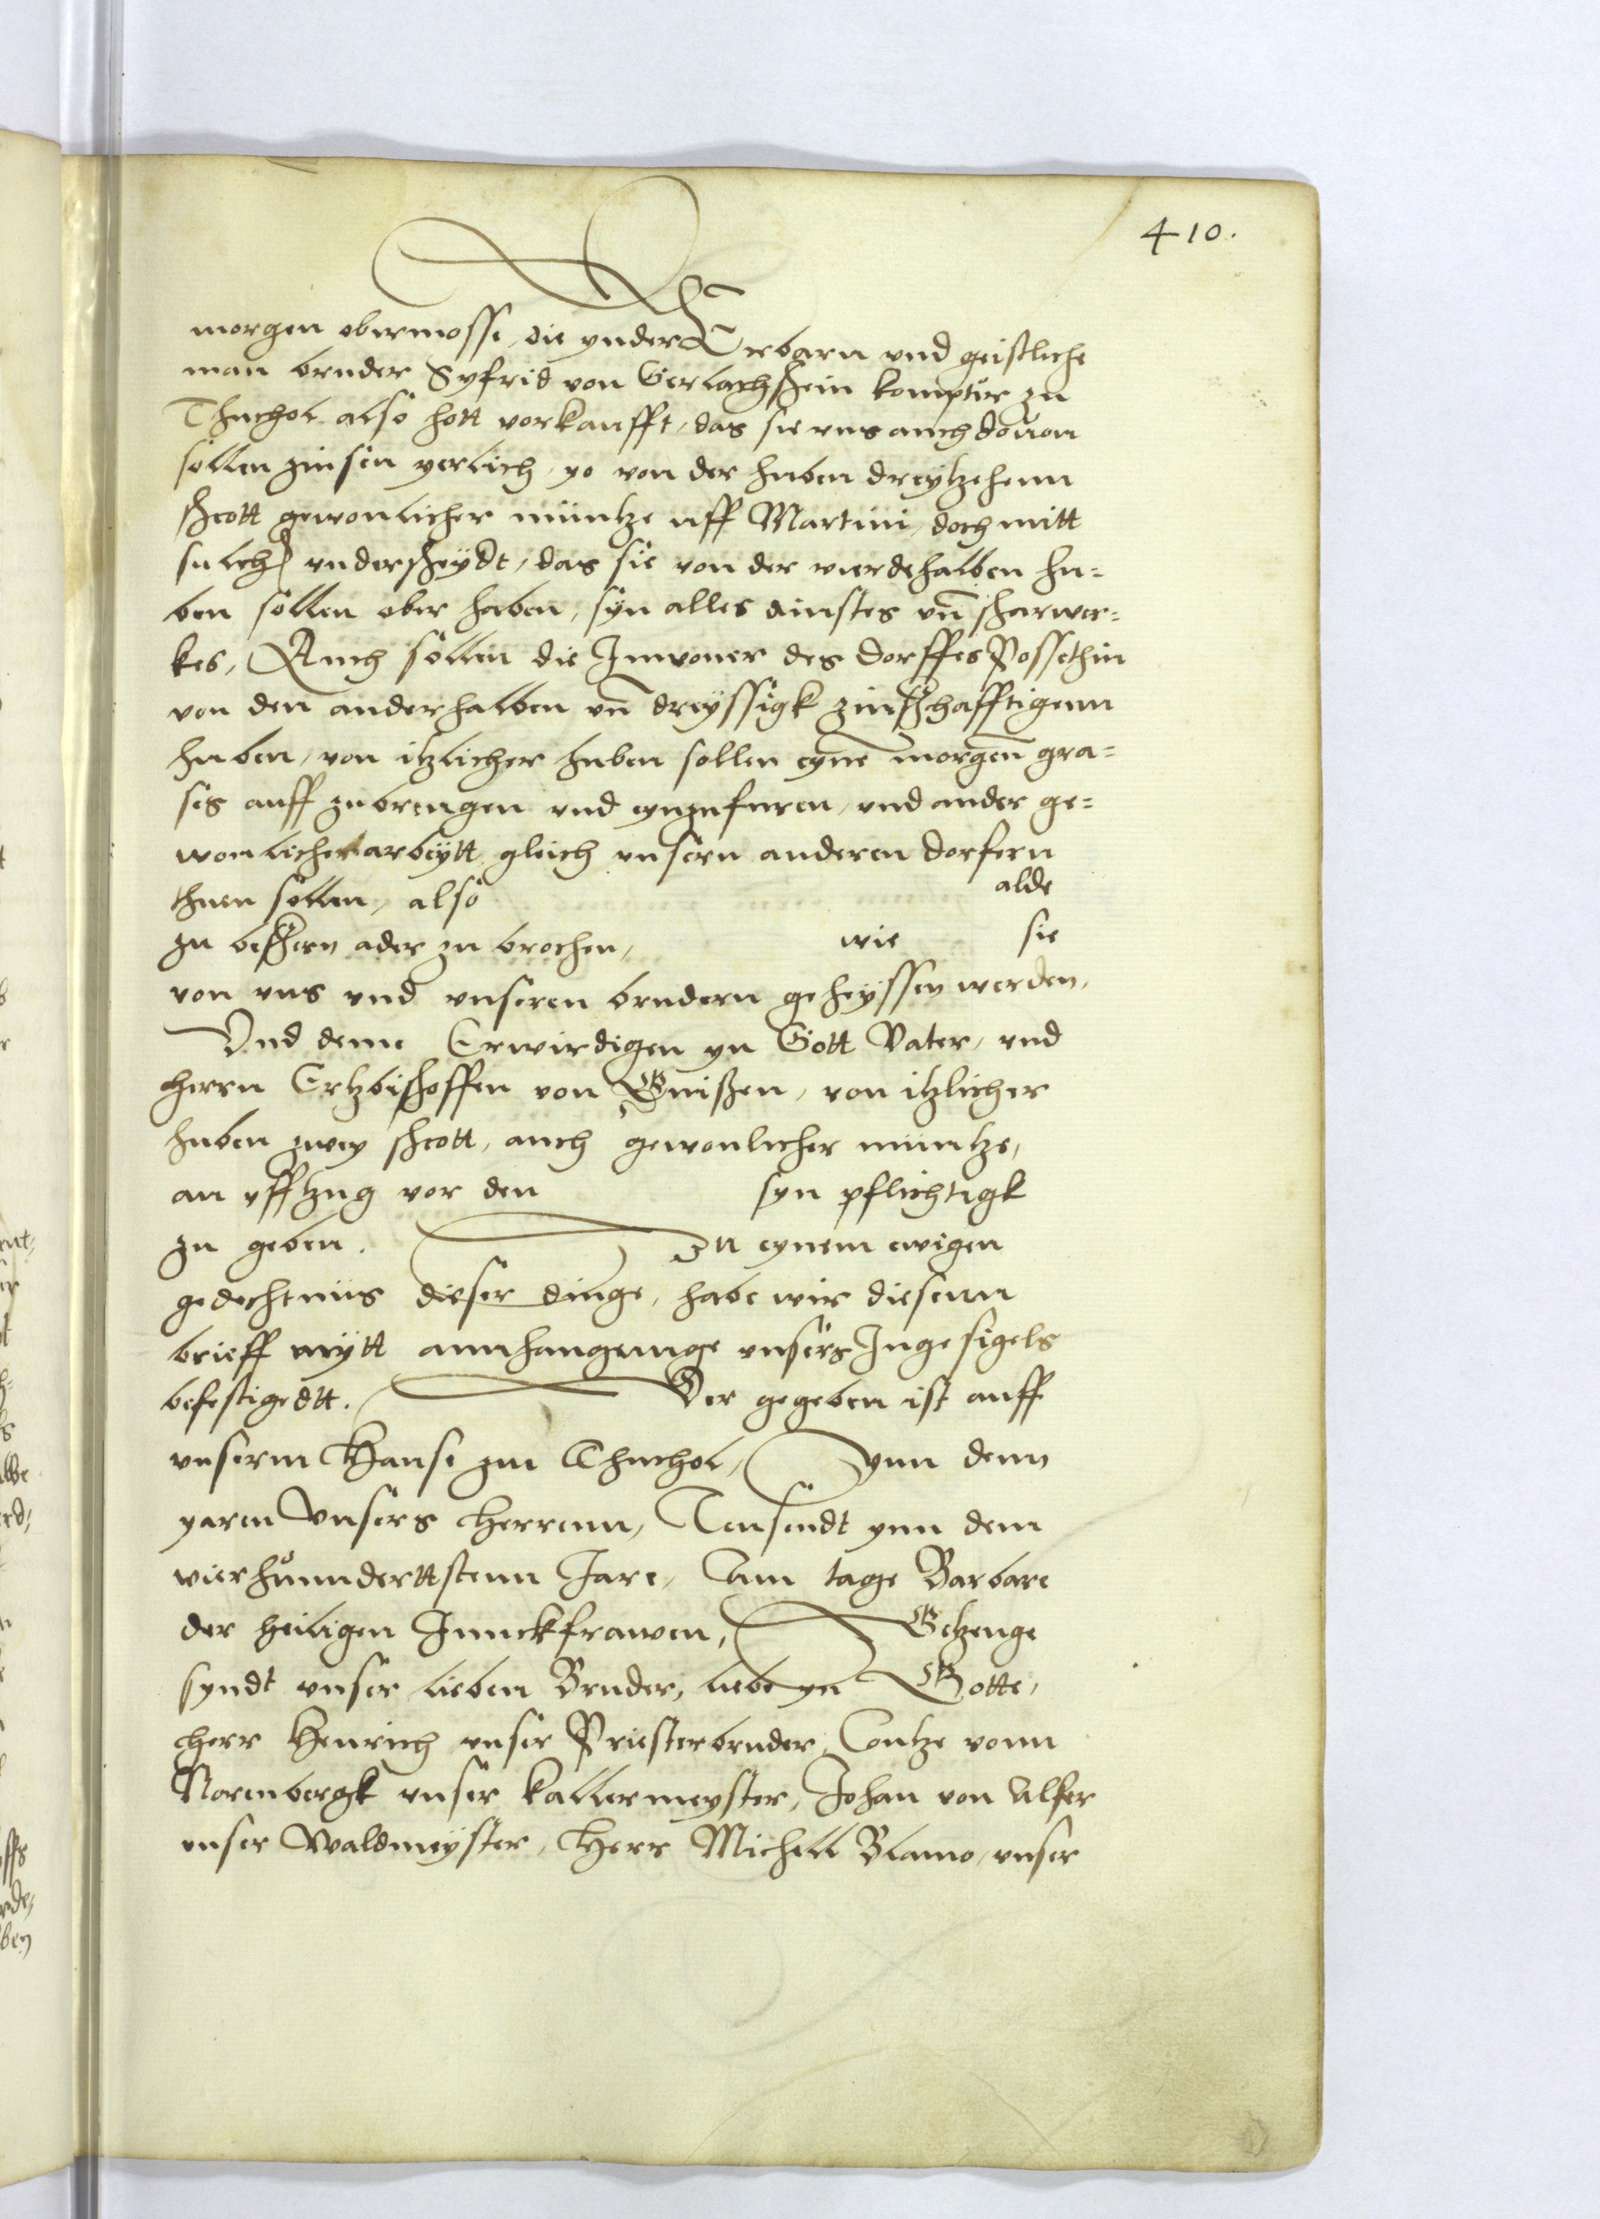 410.
morgen obermosse, die ynder Erbarn und geistliche
man bruder Syfrid von Gerlachsheim komptur zu
Thuchol also hott vorkaufft, das sie uns auch douon
sollen zinsen yerlich, yo von der huben dreytzehenn
schott gewonlicher muntze uff Martini, doch mitt
sulch underscheydt, das sie von der vierdehalben hu=
ben sollen ober haben, syn alles dinstes un scharwer=
kes, Auch sollen die Inwoner des dorffes Possethin
von den anderhalben un dreyssigk zinschhafftigenn
huben, von itzlicher huben sollen eyne morgen gra=
ses auff zubrengen und eynzufuren, und ander ge=
wonlicher arbeytt gleich unsern anderen dorfern
thuen sollen, also alde
zu bessern ader zu brochen, wie sie
von uns und unseren brudern geheyssen werden,
Und deme Erwirdigen yn Gott Vater, und
herrn Ertzbischoffen von Gnißen, von itzlicher
huben zwey schott, auch gewonlicher muntze,
an uffzug vor den syn pflichtigk
zu geben. Zu eynem ewigen
gedechtnus dieser dinge, habe wir diesenn
brieff mytt annhangunge unsers Ingesigels
befestigedtt. Der gegeben ist auff
unserm Hause zu Thuchol, Ynn denn
yaren Unsers Herrenn, Tausendt ynn dem
vierhunnderttstenn Jare, Am tage Barbare
der heiligen Junckfrawen, Getzeuge
syndt unser lieben Bruder, liebe yn Gotte,
herr Henrich unser Priesterbruder, Contze vonn
Norenbergk unser kallermeyster, Johan von Ulser
unser Waldmeyster, Herr Michell Blamo, unser